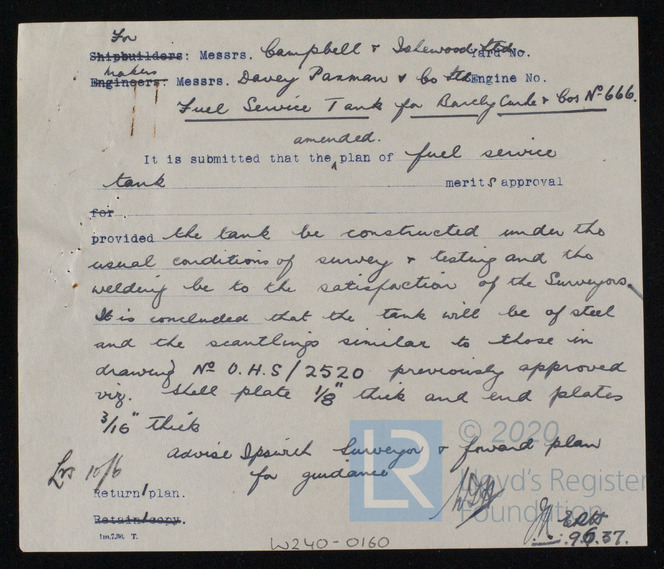 For
Shipbuilders: Messrs. Campbell & Isherwood Ltd Yard No.
Makers
Engineers: Messrs. Davey Paxman & Co Ltd Engine No.
Fuel Service Tank for Barclay Curle & Cos No 666.
amended.
It is submitted that the plan of fuel service
tank merits approval
for
provided the tank be constructed under the
usual conditions of survey & testing and the
welding be to the satisfaction of the Surveyors.
It is concluded that the tank will be of steel
and the scantlings similar to those in
drawing No O.H.S/2520 previously approved
viz. Shell plate 1/8" thick and end plates
3/16" thick
Advise Ipswich Surveyor & foward plan
for guidance
10/6
Return 1 plan.
Retain 1 copy.
1m.7.36. T.
LR
© 2020
Lloyd's Register
Foundation
ERH
9.6.37.
W240-0160